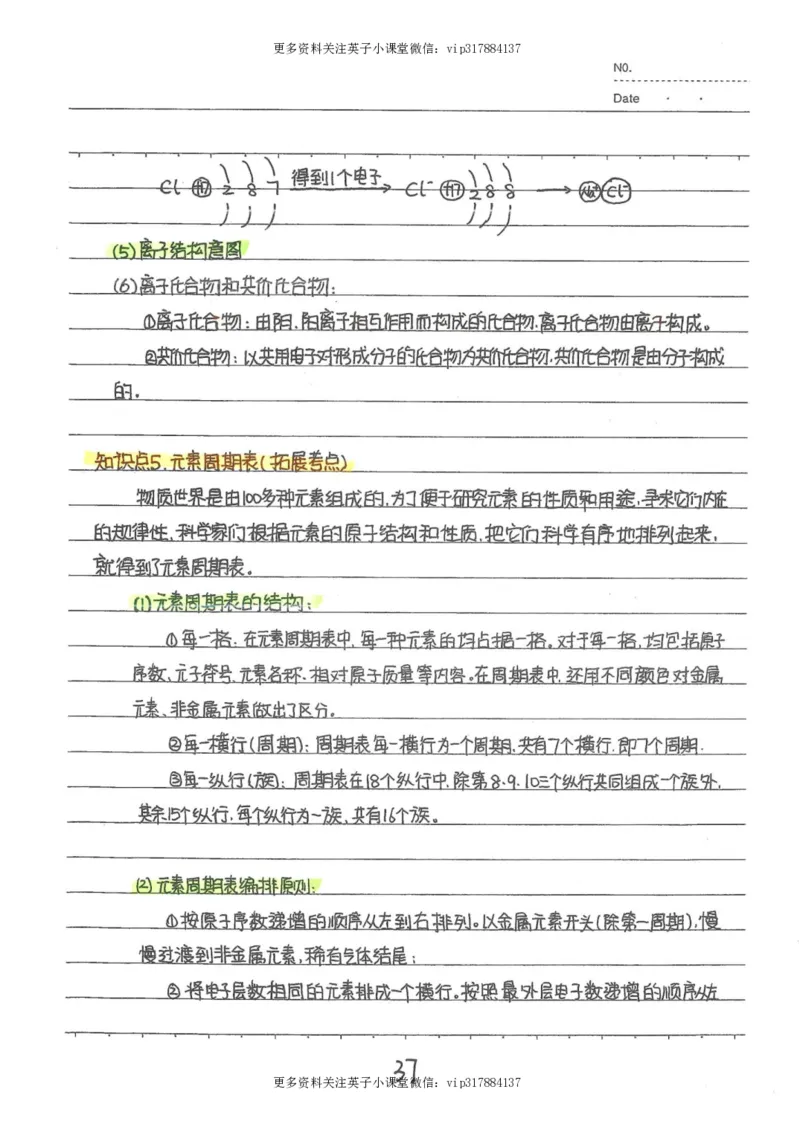 更多资料关注英子小课堂微信：vip317884137
NO.
Date · ·
Cl +17 2 8 7 得到1个电子 Cl⁻ +17 2 8 8 Na⁺ Cl⁻
(5)离子结构意图
(6)离子化合物和共价化合物：
①离子化合物：由阴、阳离子相互作用而构成的化合物，离子化合物由离子构成。
②共价化合物：以共用电子对形成分子的化合物为共价化合物，共价化合物是由分子构成
的。
知识点5.元素周期表（拓展考点）
物质世界是由100多种元素组成的，为了便于研究元素的性质和用途，寻求它们内在
的规律性，科学家们根据元素的原子结构和性质，把它们科学有序地排列起来，
就得到了元素周期表。
(1)元素周期表的结构：
①每一格：在元素周期表中，每一种元素的均占据一格。对于每一格，均包括原子
序数、元子符号、元素名称、相对原子质量等内容。在周期表中，还用不同颜色对金属
元素、非金属元素做出了区分。
②每一横行（周期）：周期表每一横行为一个周期，共有7个横行，即7个周期.
③每一纵行（族）：周期表在18个纵行中，除第8、9、10三个纵行共同组成一个族外，
其余15个纵行，每个纵行为一族、共有16个族。
(2)元素周期表编排原则：
①按原子序数递增的顺序从左到右排列。以金属元素开头（除第一周期），慢
慢过渡到非金属元素，稀有气体结尾；
②将电子层数相同的元素排成一个横行。按照最外层电子数递增的顺序从左
37
更多资料关注英子小课堂微信：vip317884137